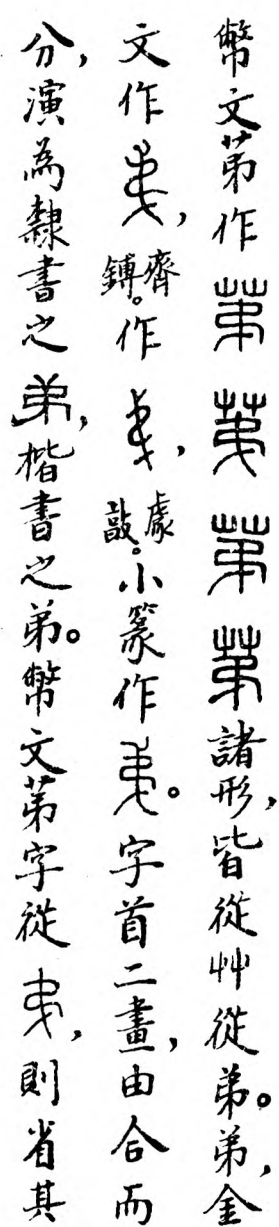 幣文苐作諸形，皆從艸從弟。弟，金
文作，齊鎛。作，𠭯。小篆作。字首二畫，由合而
分，演為隸書之弟，楷書之弟。幣文苐字從，則省其